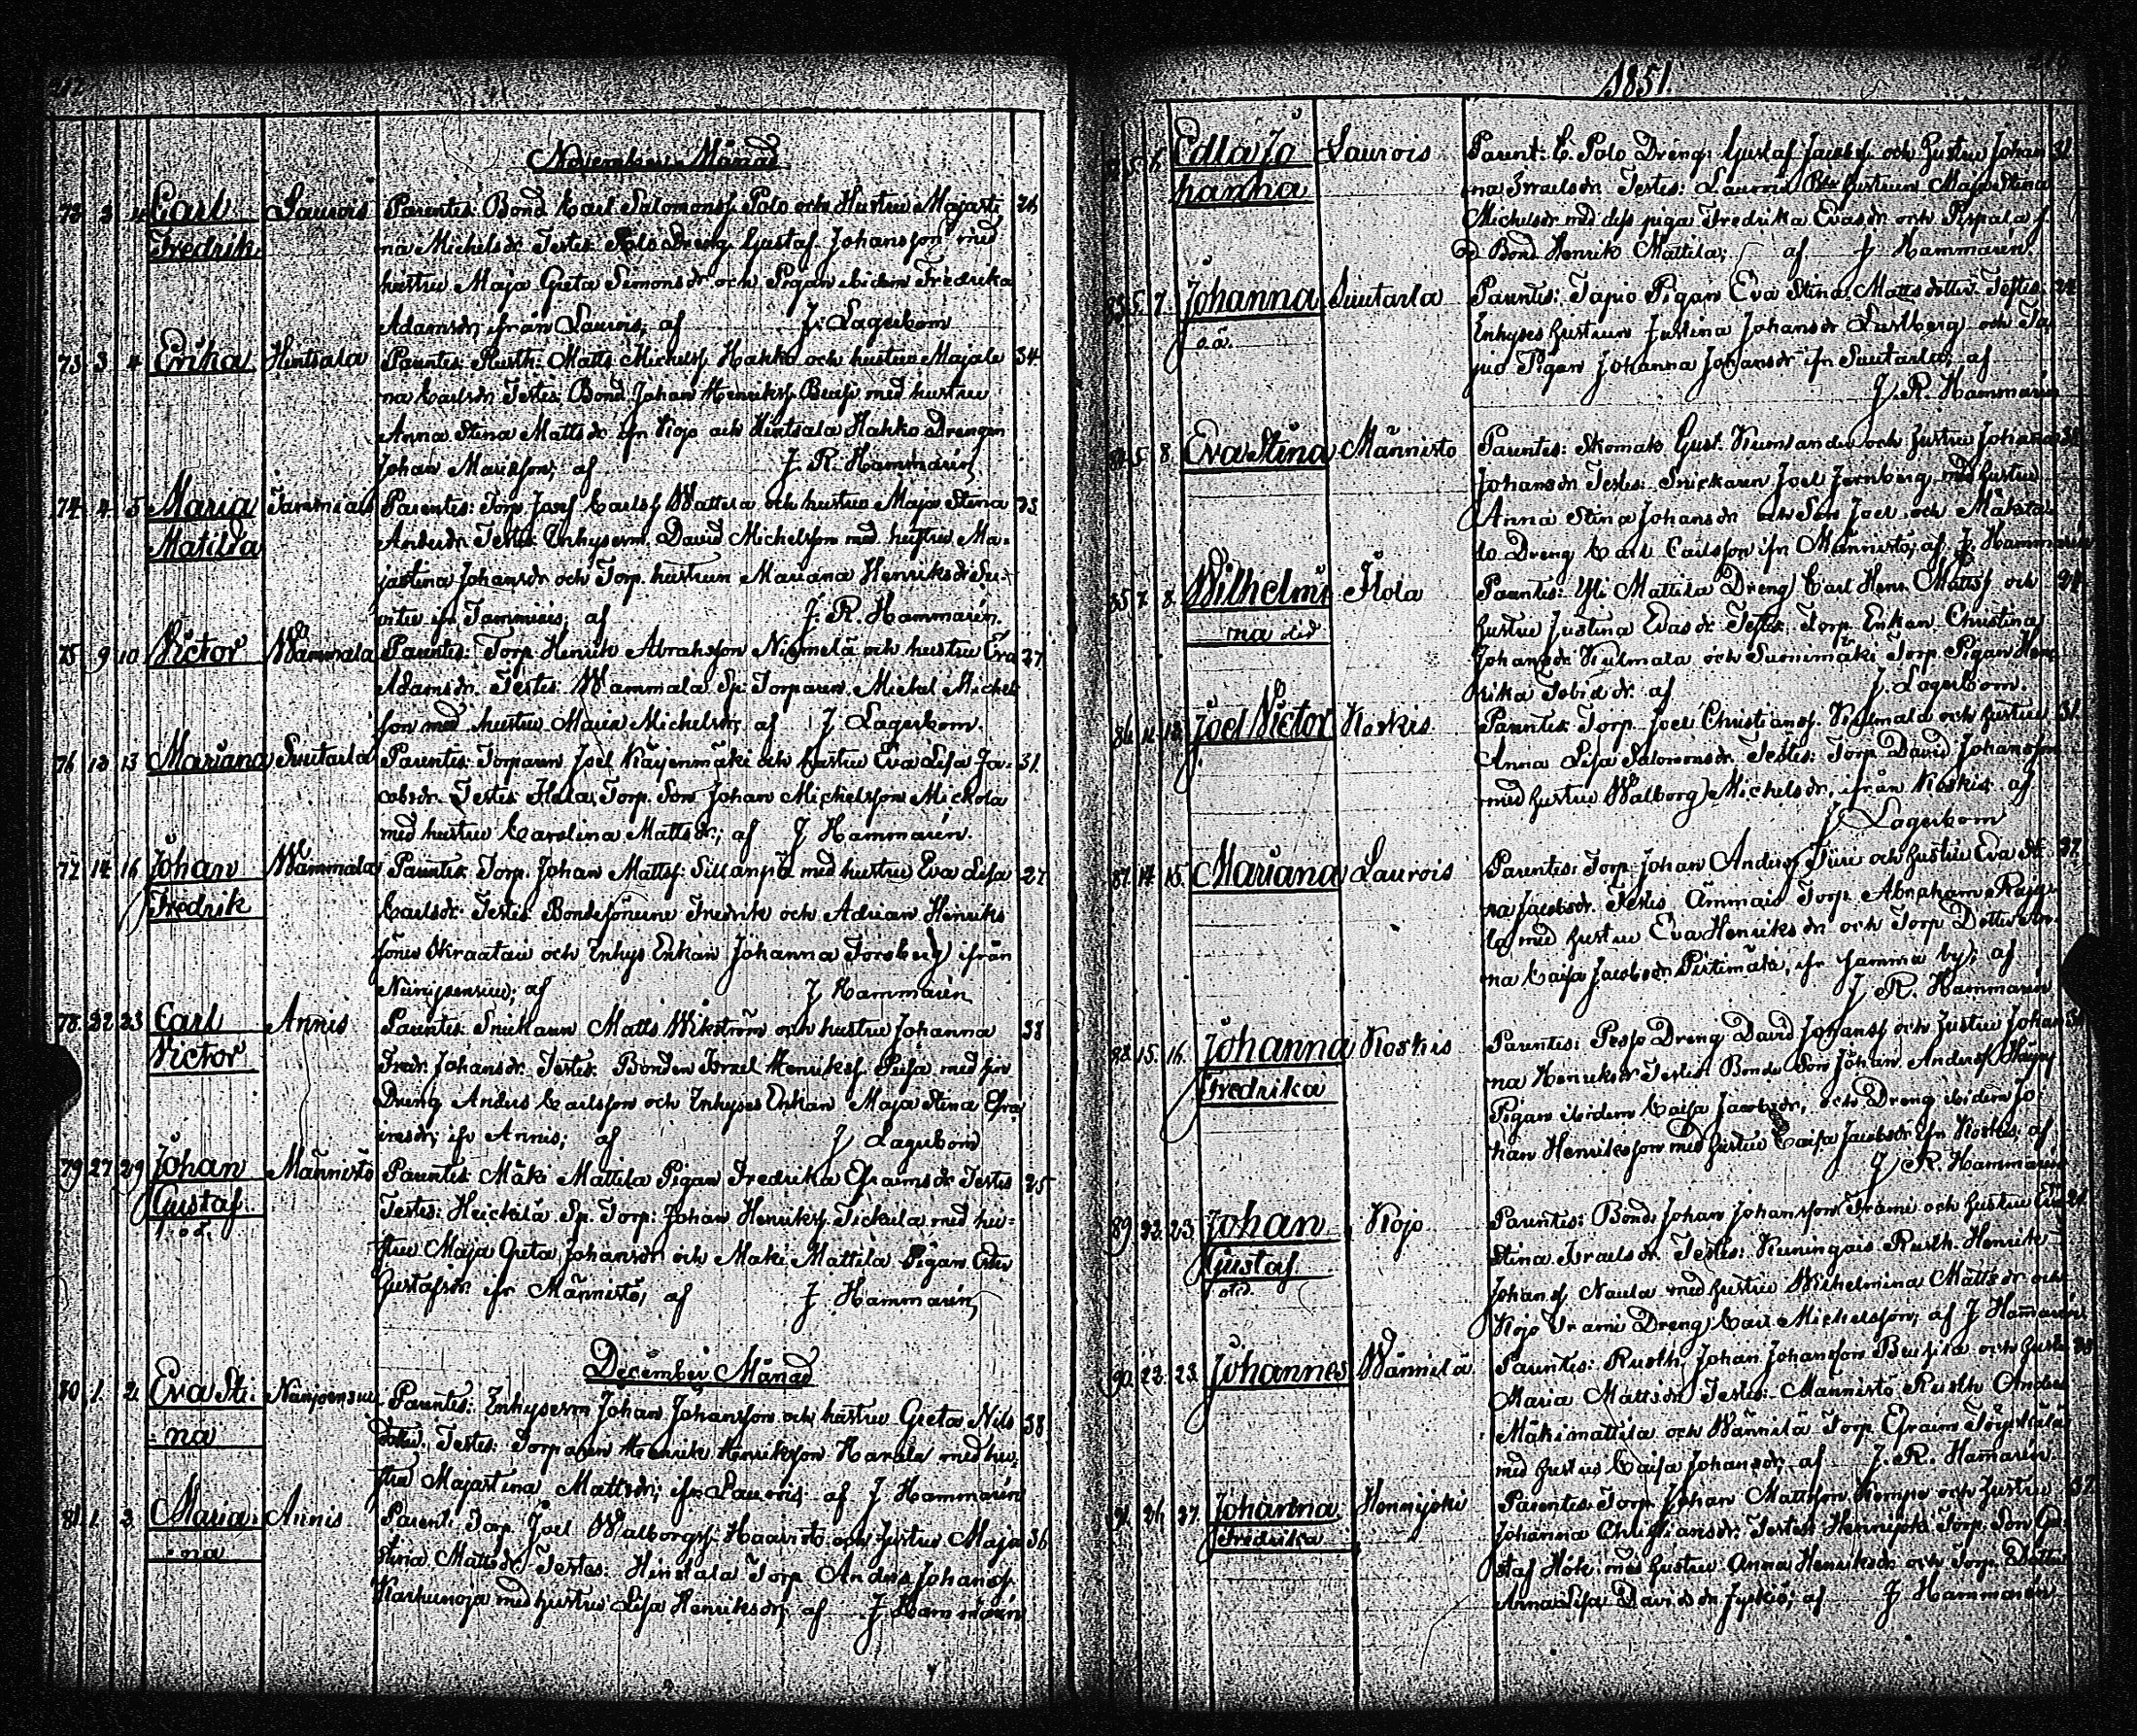 November Månad
72 3 4 Carl Laurois Parentes: Bond Karl Salomonss. Polo och Hustru Majasti 26
Fredrik na Michelsdr. Testes: Polo Dreng Gustaf Johansson med
hustru Maja Greta Simonsdr och Pigan ibidem Fredrika
Adamsdr, ifrån Laurois; af J. Lagerbom
73 3 4 Erika Hintsala Parentes: Rusth. Matts Michelss. Hakko och hustru Majale 34
na Carlsdr Testes: Bond. Johan Henrikss. med hustru
Anna Stina Mattsdr ifn Kojo och Hintsala Hakko Drengen
Johan Mariksson; af J. R. Hammarén
74 4 5 Maria Parentes: Torp. Josef Carlss. Mattila och hustru Maja Stina 23
Matilda Andersdr Testes: Enhysesm. David Michelsson med hustru Ma-
jastina Johansdr och Torp. hustrun Mariana Henriksdr
ifr Tammiais; af J. R. Hammarén.
75 9 10 Victor Wammala Parentes: Torp. Henrik Abrahsson Niemelä och hustru Eva 27
Adamsdr. Testes: Wammala Sp. Torparen Michel Michel
son med hustru Maria Michelsdr; af J. Lagerbom.
76 12 13 Mariana Suutarla Parentes: Torparen Joel Käyenmäki och hustru Eva Lisa Ja- 31.
cobsdr. Testes: Torp. Son Johan Michelsson Mickola
med hustru Carolina Mattsdr; af J. Hammarén.
77 14 16 Johan Wammala Parentes: Torp. Johan Mattss. Sillanpä med hustru Eva Lisa 27.
Fredrik Carlsdr. Testes: Bondesönerne Fredrik och Adrian Henriks
söner Skraatari och Enhys Enkan Johanna Forsberg ifrån
af J. Hammarén
78 22 23 Carl Annis Parentes: Snickaren Matts Wikström och hustru Johanna 38
Victor Fredr. Johansdr. Testes: Bonden Israel Henrikss. med sin
Dreng Anders Carlsson och Enhyses Enkan Maja Stina Efra
imsdr; ifr Annis; af J. Lagerbom
79 27 29 Johan Männistö Parentes: Mäki Mattila Pigan Fredrika Efraimsdr Testes 25
Gustaf Testes: Heickilä Sp. Torp: Johan Henrikss. med hu-
stru Maja Greta Johansdr och Maki Mattila Pigan
Gustafsdr. ifr Männistö; af J. Hammarén
December Månad
80 1. 2. Eva Sti- Parentes: Enhysesm Johan Johansson och hustru Greta Nils 38
na dotter. Testes: Torparen Henrik Henriksson Harala med hu-
stru Majastina Mattsdr; ifr Laurois af J. Hammarén
81. 1. 3. Maria- Annis Parent: Torp. Joel Walborgss: Haavisto och hustru Maja 36
na Stina Mattsdr: Testes: Hinstala Torp. Anders Johanss.
Karhunoja med hustru Lisa Henriksdr; af J. Hammarén
1851.
5. 6. Edla Jo Laurois Parent: Polo Dreng: Gustaf Jacobss. och hustru Johan 31.
hanna na Israelsdr. Testes: hustrun Maja Stina
Michelsdr med dess piga Fredrika Evasdr och
Bond Henrik Mattila; af J Hammarén.
83. 5. 7. Johanna Suutarla Parentes: Tapio Pigan Eva Stina Mattsdotter. Testes:
o.ä. Enhyses hustrun Justina Johansdr och Ta-
pio Pigan Johanna Johansdr ifn Suutarla; af
J. R. Hammarén
84. 5. 8. Eva Stina Männisto Parentes: Skomak. Gust. och hustru Johanna
Johansdr Testes: Snickaren Joel med hustru
Anna Stina Johansdr och Son Joel och
Dreng Carl Carlsson ifrn Männistö; af J. Hammarén
85 7. 8. Wilhelmi- Ilola Parentes: Yli Mattila Dreng Carl Henr. Mattss. och 24
na hustru Justina Evasdr Testes: Torp. Enkan Christina
Johansdr Kulmala och Suonimäki Torp. Pigan Hen-
rika dr. af J. Lagerbom.
86. Joel Victor Koskis Parentes: Torp. Joel Christianss. Kulmala och hustru 31.
Anna Lisa Salomonsdr. Testes: Torp. David Johansson
med hustru Walborg Michelsdr, ifrån Koskis af
J Lagerbom
87. 14. 15. Mariana Laurois Parentes: Torp. Johan Anderss. och hustru Eva Sti 37.
na Jacobsdr. Testes Ämmais Torp. Abraham
med hustru Eva Henriksdr och Torp. Dotter An-
na Caisa Jacobsdr Pirtimäki, ifr samma by; af
J. R. Hammarén
88. 15. 16. Johanna Koskis Parentes: Dreng David Johanss. och hustru Johan
Fredrika na Henriksdr Testes: Bonde Son Johan Anderss.
Pigan ibidem Caisa Jacobsdr, och Dreng ibidem Jo-
han Henriksson med hustru Caisa Jacobsdr ifn Koskis; af
J. R. Hammarén
89 22. 23. Johan Kojo Parentes: Bond. Johan Johansson Frami och hustru
Gustaf Stina Israelsdr. Testes: Kuningais Rusth. Henrik
Johanss. Naula med hustru Wilhelmina Mattsdr och
Kojo Frami Dreng Carl Michelsson; af J Hammarén
90. 22. 23. Johannes Wännilä Parentes: Rusth. Johan Johansson och hustru
Maria Mattsdr Testes: Männistö Rusth Anders
Mäkimattila och Wännilä Torp. Efraim
med hustru Caisa Johansdr; af J. R. Hamarén
91. 26. 27. Johanna Hennijoki Parentes: Torp. Johan Mattsson Kempe och hustru 37.
Fredrika Johanna Christiansdr. Testes: Hennijoki Torp: Son Gu-
staf Hök med hustru Anna Henriksdr och Torp. Dotter
Anna Lisa Davidsdr; af J Hammarén